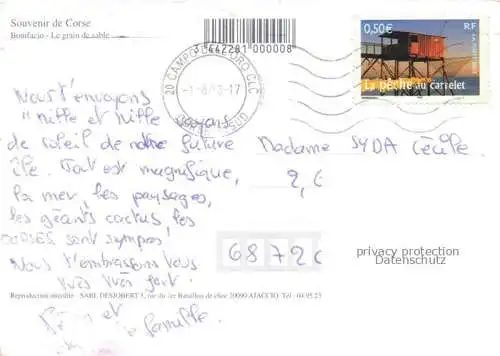 Souvenir de Corse
Bonifacio - Le grain de sable
3 442281 000008
0,50€ RF
LA POSTE
La pêche au carrelet
20 CAMPO DELL'ORO CLC
CORSE DU
Nous t'envoyons
"mille et mille
rayons
de soleil de notre future
île. Tout est magnifique,
la mer, les paysages,
les géants cactus, les
corses sont sympas!
Nous t'embrassons tous
très très fort.
et
famille.
Madame SYDA Cécile
2, C
6872
privacy protection
Datenschutz
Reproduction interdite - SARL DESJOBERT 3, rue du 1er Bataillon de choc 20090 AJACCIO Tél : 04.95.23